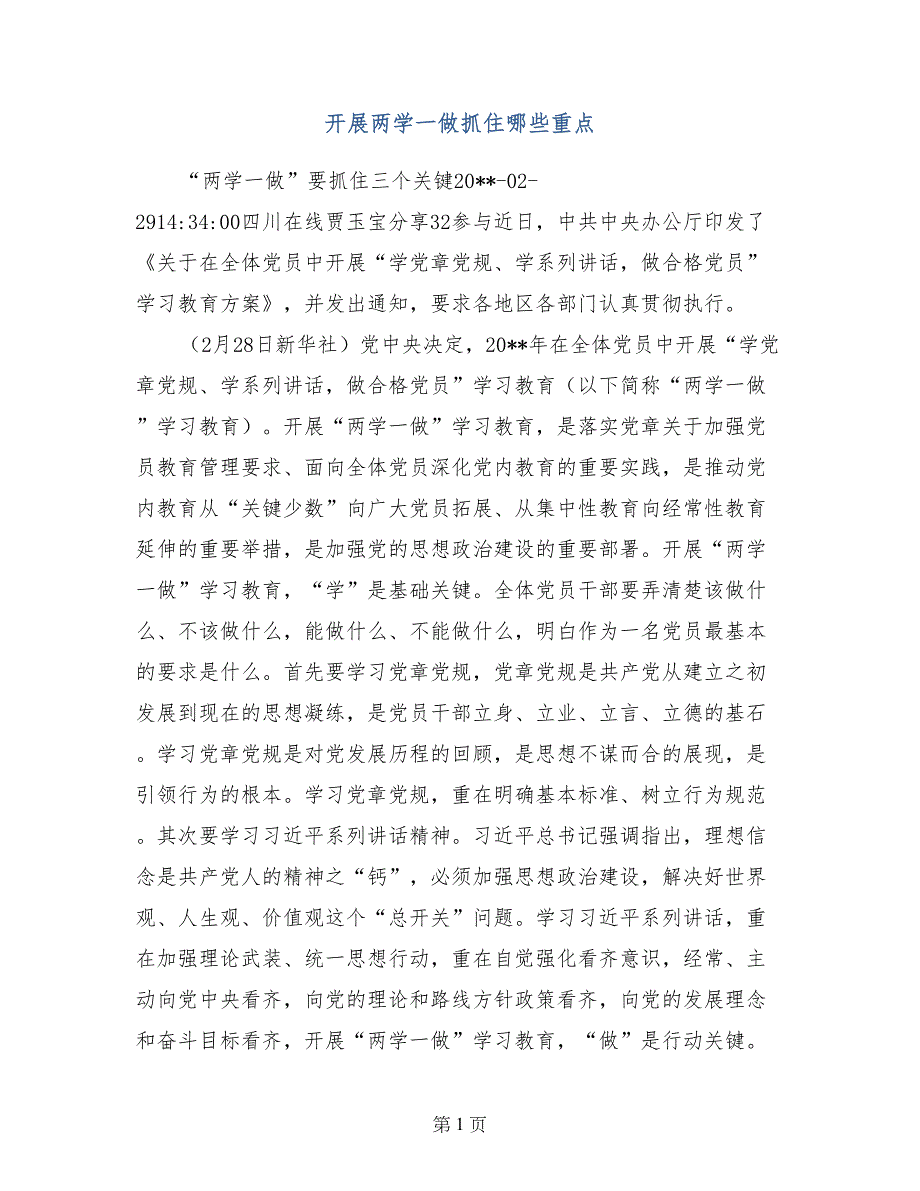 开展两学一做抓住哪些重点
“两学一做”要抓住三个关键20**-02-
2914:34:00四川在线贾玉宝分享32参与近日，中共中央办公厅印发了
《关于在全体党员中开展“学党章党规、学系列讲话，做合格党员”
学习教育方案》，并发出通知，要求各地区各部门认真贯彻执行。
（2月28日新华社）党中央决定，20**年在全体党员中开展“学党
章党规、学系列讲话，做合格党员”学习教育（以下简称“两学一做
”学习教育）。开展“两学一做”学习教育，是落实党章关于加强党
员教育管理要求、面向全体党员深化党内教育的重要实践，是推动党
内教育从“关键少数”向广大党员拓展、从集中性教育向经常性教育
延伸的重要举措，是加强党的思想政治建设的重要部署。开展“两学
一做”学习教育，“学”是基础关键。全体党员干部要弄清楚该做什
么、不该做什么，能做什么、不能做什么，明白作为一名党员最基本
的要求是什么。首先要学习党章党规，党章党规是共产党从建立之初
发展到现在的思想凝练，是党员干部立身、立业、立言、立德的基石
。学习党章党规是对党发展历程的回顾，是思想不谋而合的展现，是
引领行为的根本。学习党章党规，重在明确基本标准、树立行为规范
。其次要学习习近平系列讲话精神。习近平总书记强调指出，理想信
念是共产党人的精神之“钙”，必须加强思想政治建设，解决好世界
观、人生观、价值观这个“总开关”问题。学习习近平系列讲话，重
在加强理论武装、统一思想行动，重在自觉强化看齐意识，经常、主
动向党中央看齐，向党的理论和路线方针政策看齐，向党的发展理念
和奋斗目标看齐，开展“两学一做”学习教育，“做”是行动关键。
第 1 页